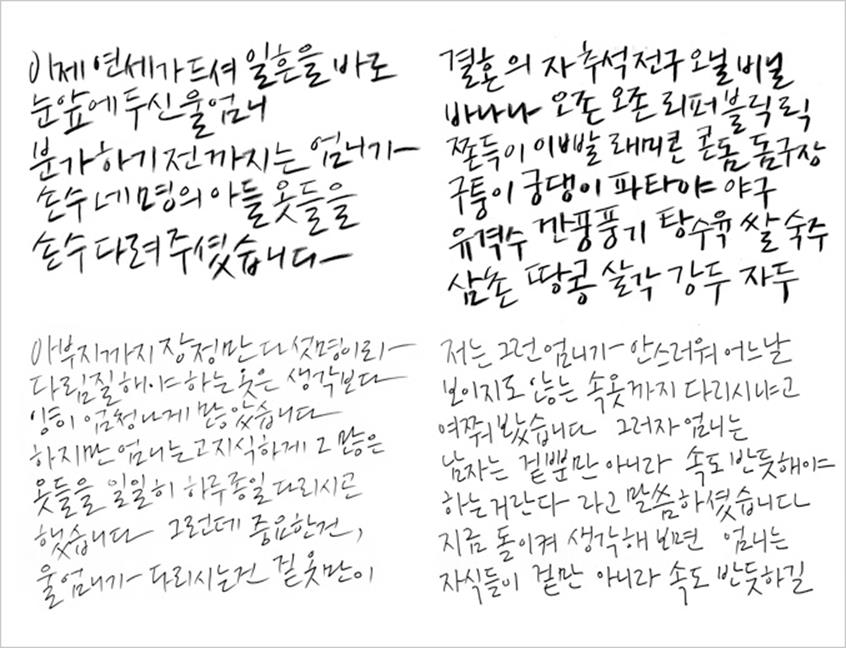 이제 연세가 드셔 일흔을 바로
눈앞에 두신 울엄니
분가하기 전까지는 엄니가
손수 네 명의 아들 옷들을
손수 다려 주셨습니다
결혼의 자 추석 전구 오널 비닐
바나나 오존 오존 리퍼블릭 릭
쫀득이 이빠날 래미콘 콘돔 돔구장
구퉁이 궁댕이 파타야 야구
유격수 깐풍풍기 탕수육 쌀 숙주
삼촌 땅콩 살각 강두 자두
아부지까지 장정만 다섯명이라
다림질해야 하는 옷은 생각보다
양이 엄청나게 많았습니다
하지만 엄니는 고지식하게 그 많은
옷들을 일일히 하루종일 다리시곤
했습니다 그런데 중요한건,
울엄니가 다리시는건 겉옷만이
저는 그런 엄니가 안스러워 어느날
보이지도 않는 속옷까지 다리시냐고
여쭤 봤습니다 그러자 엄니는
남자는 겉뿐만 아니라 속도 반듯해야
하는거란다 라고 말씀하셨습니다
지금 돌이켜 생각해 보면 엄니는
자식들이 겉만 아니라 속도 반듯하길